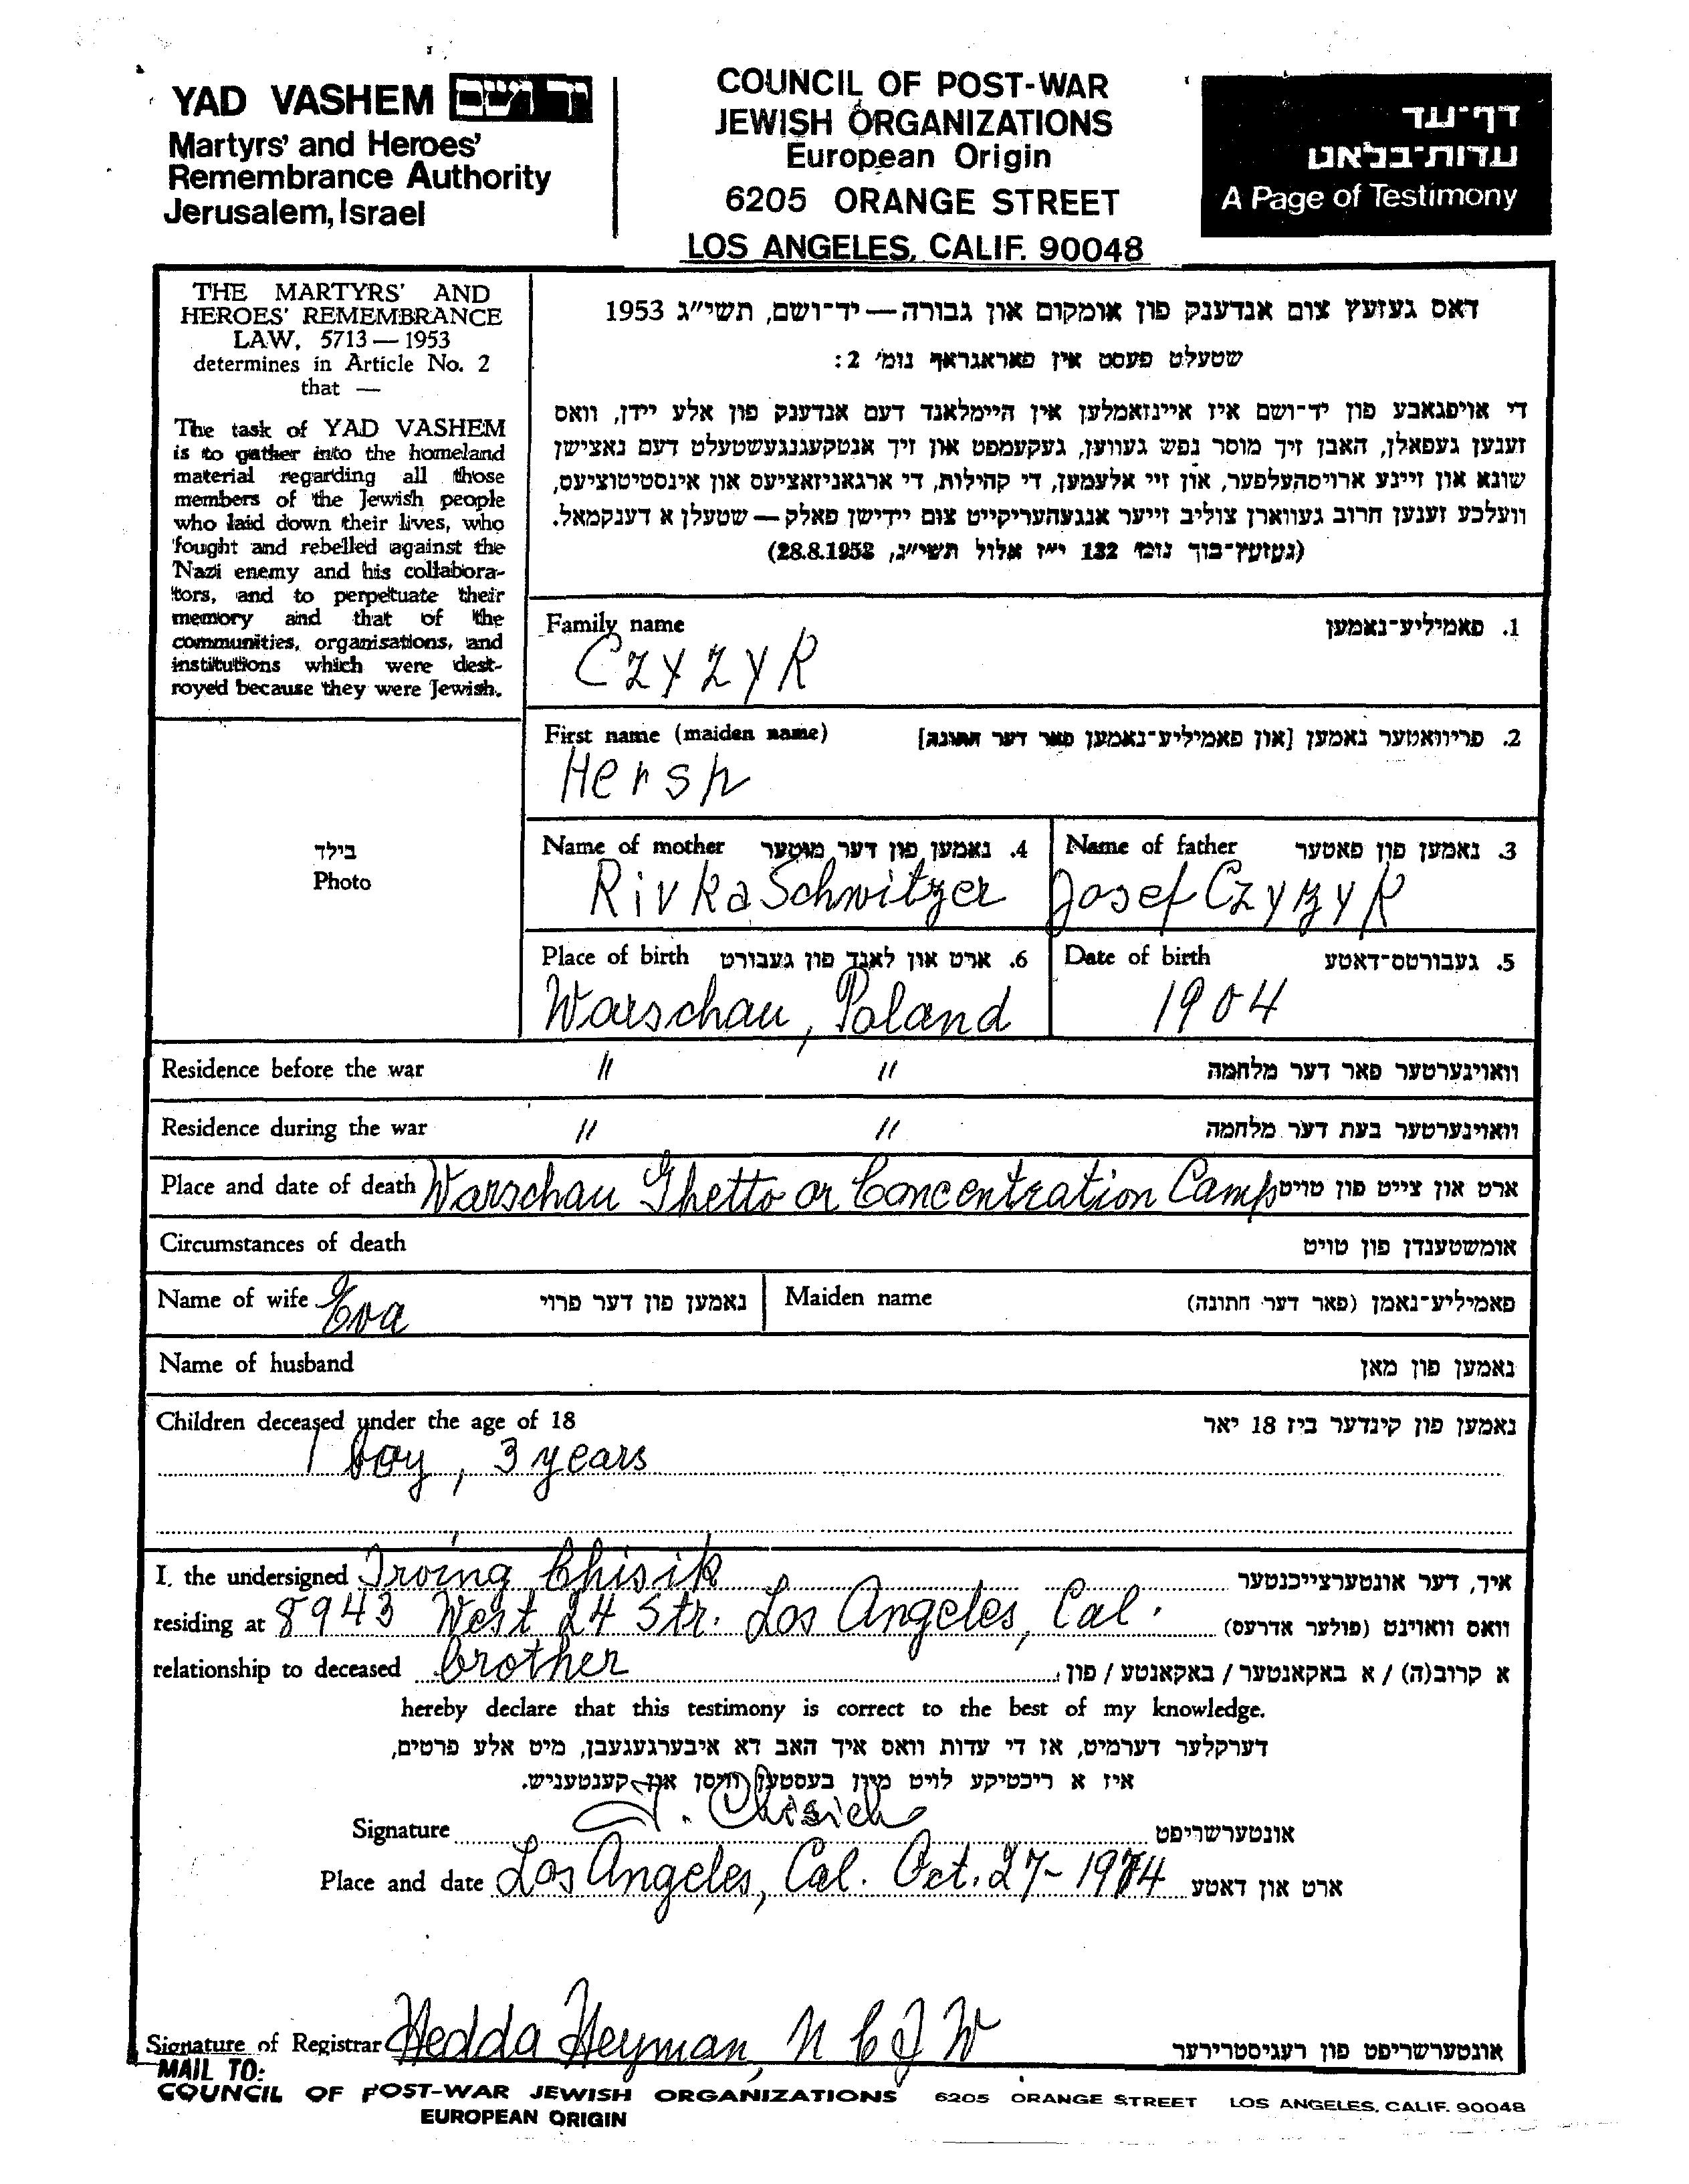 YAD VASHEM יד ושם
Martyrs' and Heroes'
Remembrance Authority
Jerusalem, Israel
COUNCIL OF POST-WAR
JEWISH ORGANIZATIONS
European Origin
6205 ORANGE STREET
LOS ANGELES, CALIF. 90048
דף־עד
עדות־בלאט
A Page of Testimony
THE MARTYRS' AND
HEROES' REMEMBRANCE
LAW, 5713 — 1953
determines in Article No. 2
that —
The task of YAD VASHEM
is to gather into the homeland
material regarding all those
members of the Jewish people
who laid down their lives, who
fought and rebelled against the
Nazi enemy and his collabora-
tors, and to perpetuate their
memory and that of the
communities, organisations, and
institutions which were dest-
royed because they were Jewish.
דאס געזעץ צום אנדענק פון אומקום און גבורה — יד־ושם, תשי״ג 1953
שטעלט פעסט אין פאראגראף נומ׳ 2:
די אויפגאבע פון יד־ושם איז איינזאמלען אין היימלאנד דעם אנדענק פון אלע יידן, וואס
זענען געפאלן, האבן זיך מוסר נפש געווען, געקעמפט און זיך אנטקעגנגעשטעלט דעם נאצישן
שונא און זיינע ארויסהעלפער, און זיי אלעמען, די קהילות, די ארגאניזאציעס און אינסטיטוציעס,
וועלכע זענען חרוב געווארן צוליב זייער אנגעהעריקייט צום יידישן פאלק — שטעלן א דענקמאל.
(געזעץ־בוך נומ׳ 132 י״ז אלול תשי״ג, 28.8.1953)
Family name 1. פאמיליע־נאמען
CZYZYK
First name (maiden name) 2. פריוואטער נאמען [און פאמיליע־נאמען פאר דער חתונה]
Hersh
Name of mother 4. נאמען פון דער מוטער
Rivka Schwitzer
Name of father 3. נאמען פון פאטער
Josef Czyzyk
Place of birth 6. ארט און לאנד פון געבורט
Warschau, Poland
Date of birth 5. געבורטס־דאטע
1904
בילד
Photo
Residence before the war " " וואוינערטער פאר דער מלחמה
Residence during the war " " וואוינערטער בעת דער מלחמה
Place and date of death Warschau Ghetto or Concentration Camp ארט און צייט פון טויט
Circumstances of death אומשטענדן פון טויט
Name of wife Eva נאמען פון דער פרוי
Maiden name פאמיליע־נאמן (פאר דער חתונה)
Name of husband נאמען פון מאן
Children deceased under the age of 18 נאמען פון קינדער ביז 18 יאר
1 boy, 3 years
I, the undersigned Irving Chisik איך, דער אונטערצייכנטער
residing at 8943 West 24 Str. Los Angeles, Cal. וואס וואוינט (פולער אדרעס)
relationship to deceased brother א קרוב(ה) / א באקאנטער / באקאנטע / פון
hereby declare that this testimony is correct to the best of my knowledge.
דערקלער דערמיט, אז די עדות וואס איך האב דא איבערגעגעבן, מיט אלע פרטים,
איז א ריכטיקע לויט מיין בעסטען וויסן און קענטעניש.
Signature I. Chisick אונטערשריפט
Place and date Los Angeles, Cal. Oct. 27 - 1974 ארט און דאטע
Signature of Registrar Hedda Heyman, NCJW אונטערשריפט פון רעגיסטרירער
MAIL TO:
COUNCIL OF POST-WAR JEWISH ORGANIZATIONS 6205 ORANGE STREET LOS ANGELES, CALIF. 90048
EUROPEAN ORIGIN